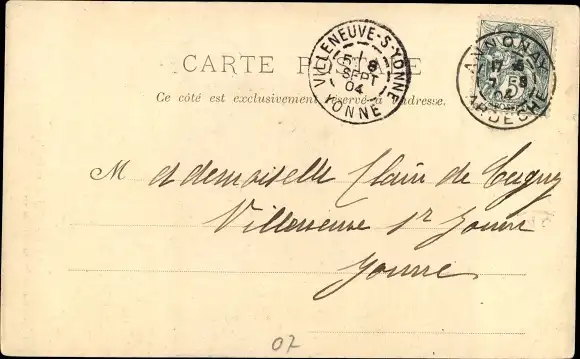 CARTE POSTALE
Ce côté est exclusivement réservé à l'adresse.
VILLENEUVE-S-YONNE
8
SEPT
04
YONNE
ANNONAY
17
04
ARDÈCHE
Mademoiselle Clair de Cugny
Villeneuve s/r Yonne
Yonne
07